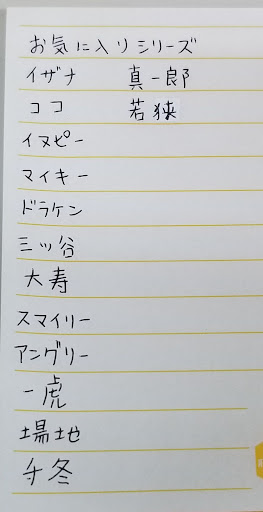 お気に入りシリーズ
イザナ 真一郎
ココ 若狭
イヌピー
マイキー
ドラケン
三ッ谷
大寿
スマイリー
アングリー
一虎
場地
千冬